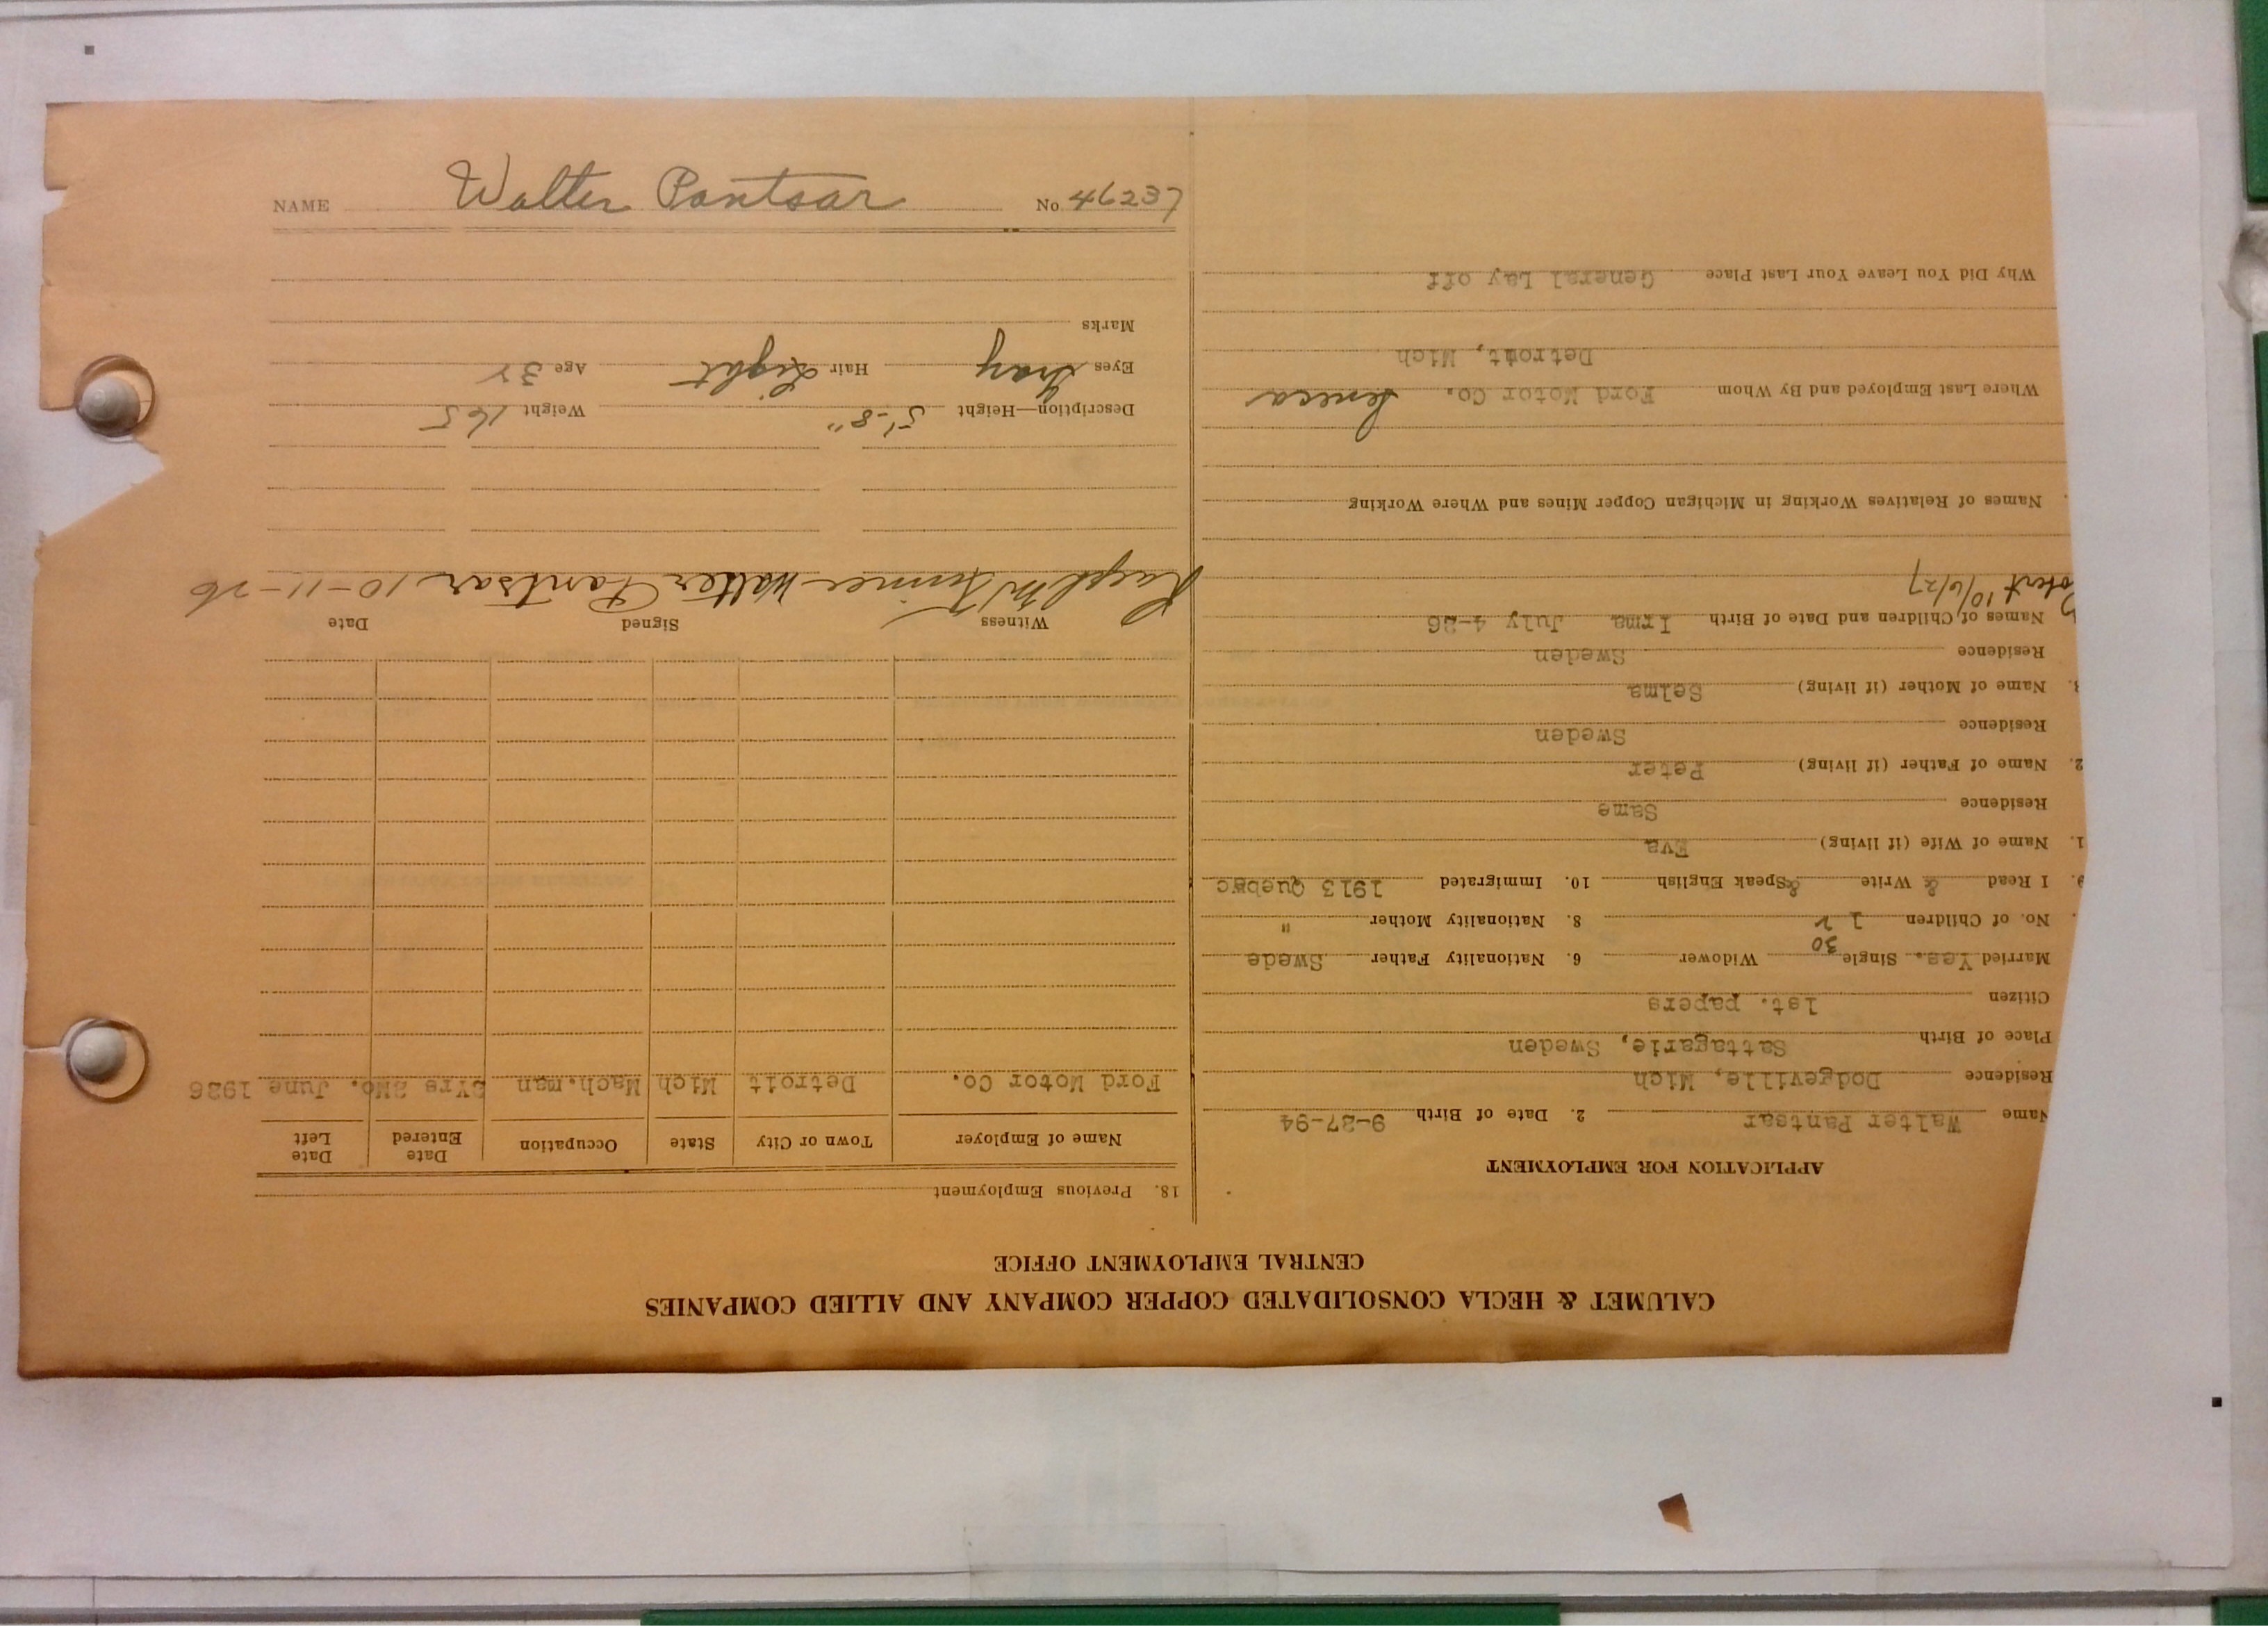 CALUMET & HECLA CONSOLIDATED COPPER COMPANY AND ALLIED COMPANIES
CENTRAL EMPLOYMENT OFFICE
APPLICATION FOR EMPLOYMENT
Name Walter Pantsar 2. Date of Birth 9-27-94
Residence Dodgeville, Mich
Place of Birth Sattagarie, Sweden
Citizen 1st. papers
Married Yes. Single 30 Widower 6. Nationality Father Swede
No. of Children 1 2 8. Nationality Mother "
9. I Read & Write & Speak English 10. Immigrated 1913 Quebec
1. Name of Wife (if living) Eva
Residence Same
2. Name of Father (if living) Peter
Residence Sweden
3. Name of Mother (if living) Selma
Residence Sweden
Names of Children and Date of Birth Irma July 4-26
10/6/27
Names of Relatives Working in Michigan Copper Mines and Where Working
Where Last Employed and By Whom Ford Motor Co. Seneca
Detroit, Mich
Why Did You Leave Your Last Place General Lay off
18. Previous Employment
Name of Employer Town or City State Occupation Date Entered Date Left
Ford Motor Co. Detroit Mich Mach.man 3Yrs 2Mo. June 1926
Witness Signed Date
Ralph Walter Pantsar 10-11-26
Description—Height 5'-8" Weight 165
Eyes Gray Hair Light Age 32
Marks
NAME Walter Pantsar No 46237